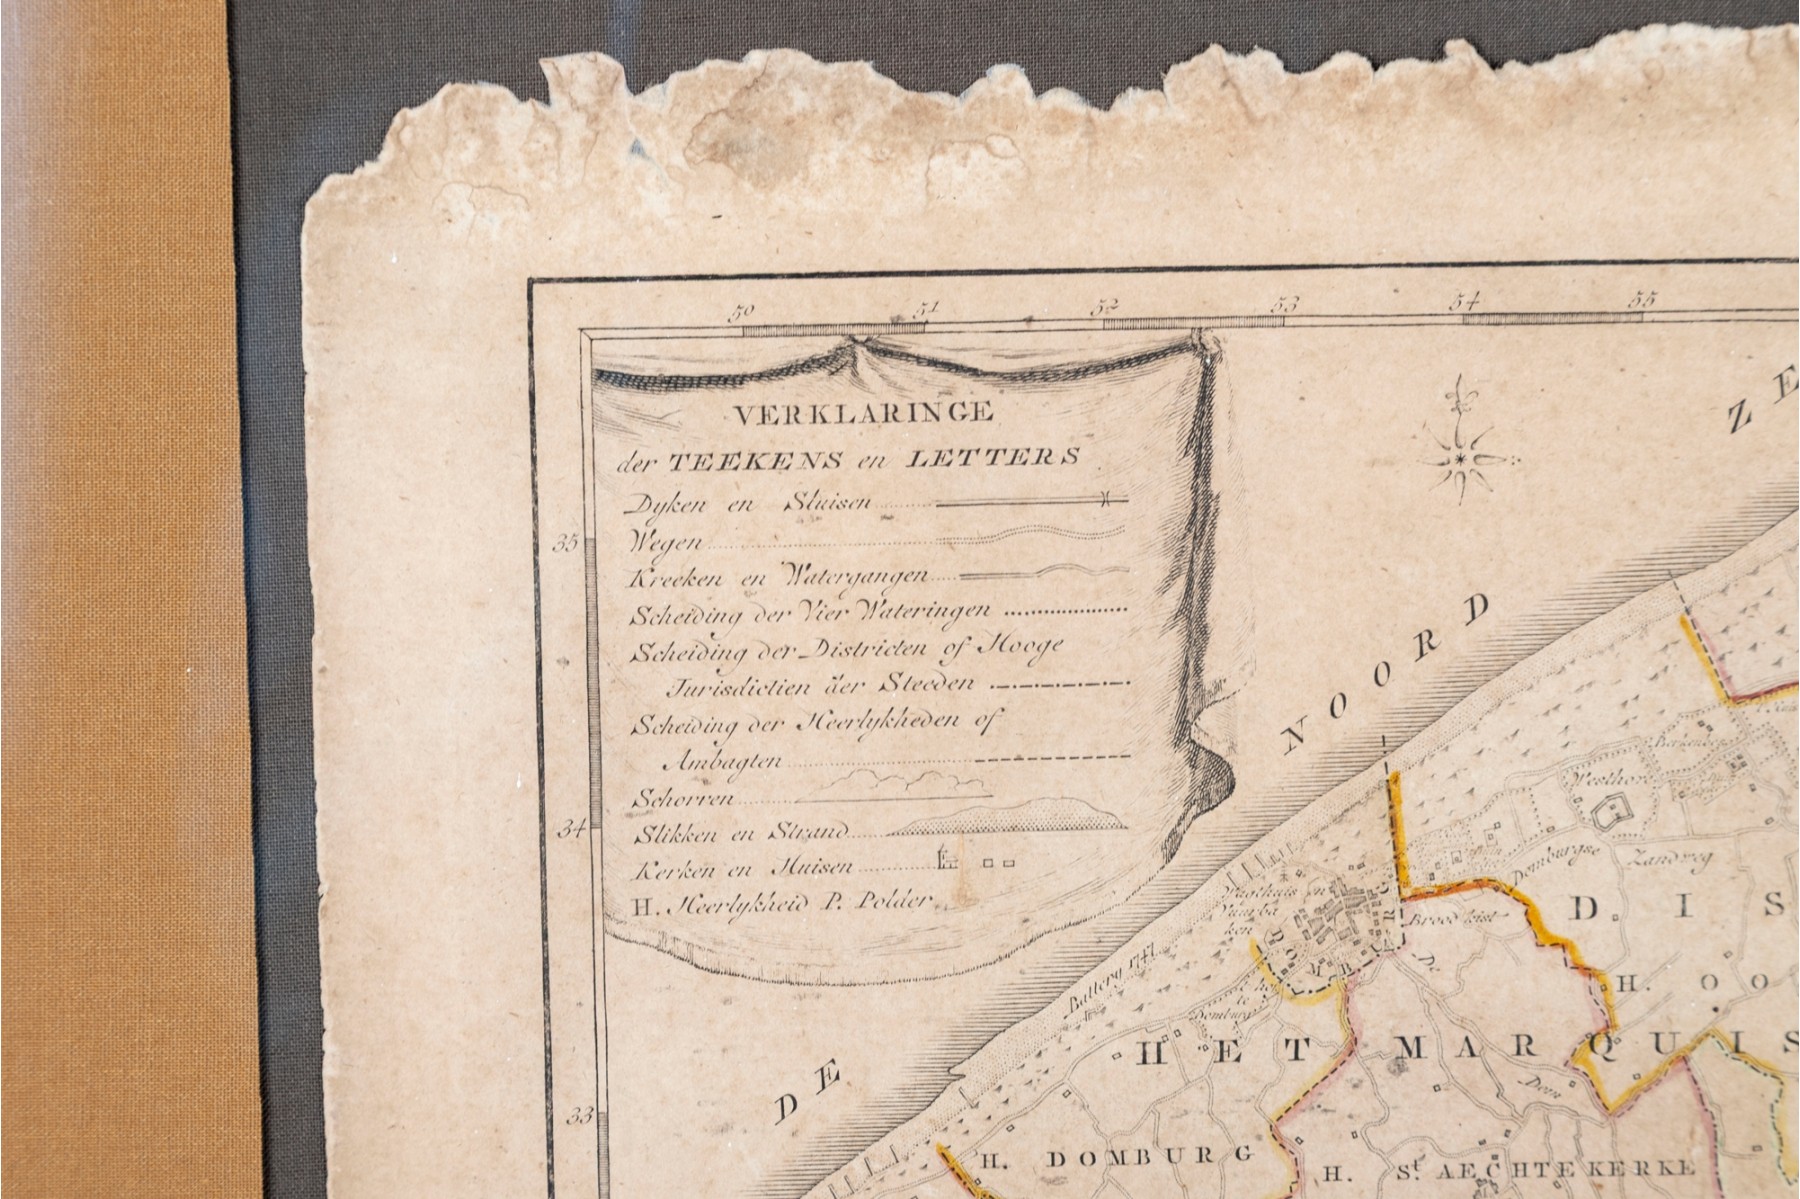 50 51 52 53 54 55
VERKLARINGE
der TEEKENS en LETTERS
Dyken en Sluisen
Wegen
Kreeken en Watergangen
Scheiding der Vier Wateringen
Scheiding der Districten of Hooge
Jurisdictien der Steeden
Scheiding der Heerlykheden of
Ambagten
Schorren
Slikken en Strand
Kerken en Huisen
H. Heerlykheid P. Polder
35
34
33
DE NOORD ZE
Westhove
Domburgse Zandweg
Vuurba
ken
DOMBURG
Brood kist
Battery 1747.
Domburg
DIS
H. OO
HET MARQUIS
H. DOMBURG
H. St. AECHTEKERKE